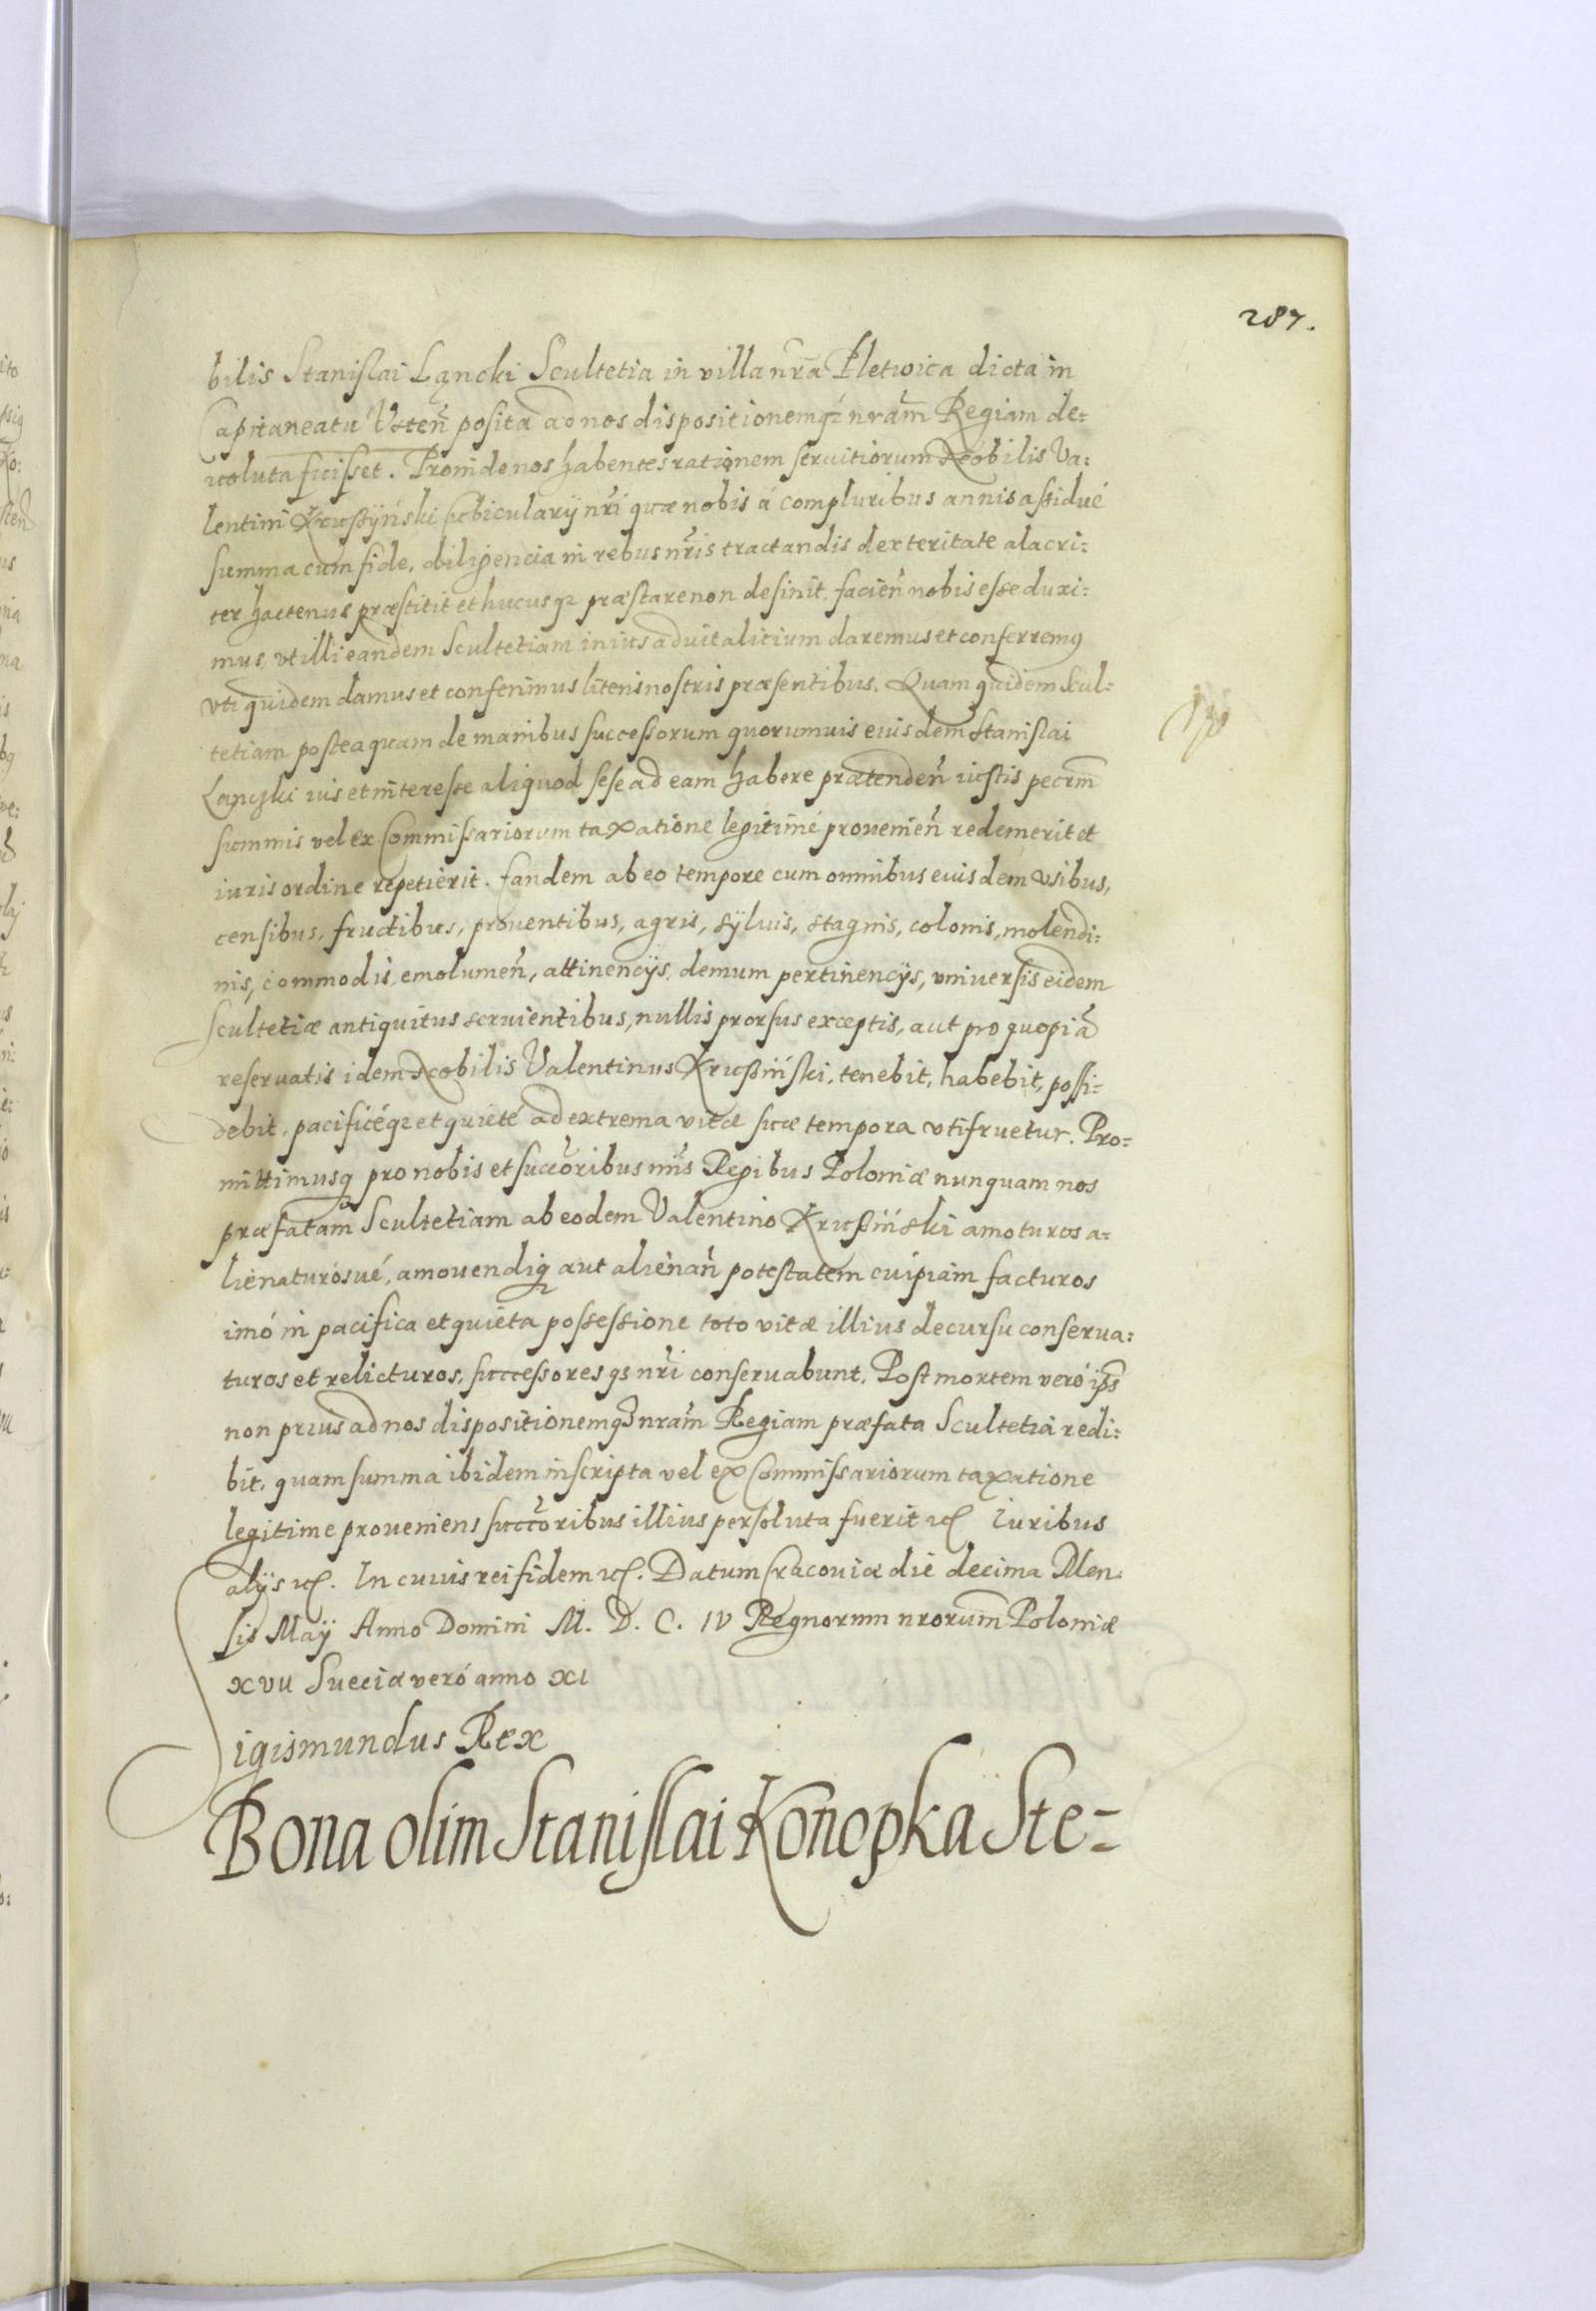 287.
bilis Stanislai Lącki Scultetia in villa nr̃a Pletwica dicta in
Capitaneatu Usceñ posita ad nos dispositionemq; nram̃ Regiam de=
uoluta fuisset. Proinde nos habentes rationem seruitiorum Nobilis Va:
lentini Krußÿński cubicularij nr̃i quæ nobis á compluribus annis assidué
summa cum fide, diligencia in rebus nr̃is tractandis dexteritate alacri:
ter hactenus præstitit et hucusq; præstare non desinit, facieñ nobis esse duxi:
mus, vt illi eandem Scultetiam in ius aduitalitium daremus et conferremus
vti quidem damus et conferimus literis nostris præsentibus. Quam quidem Scul:
tetiam posteaquam de manibus successorum quorumuis eiusdem Stanislai
Lączki ius et interesse aliquod sese ad eam habere prætendeñ iustis pecrm̃
summis vel ex Commissariorum taxatione legitimé prouenieñ redemerit et
iuris ordine repetierit. Eandem ab eo tempore cum omnibus eiusdem vsibus,
censibus, fructibus, prouentibus, agris, sÿluis, stagnis, colonis, molendi:
nis, commodis, emolumeñ, attinencijs, demum pertinencijs, vniuersis eidem
Scultetiæ antiquitus seruientibus, nullis prorsus exceptis, aut pro quopiã
reseruatis idem Nobilis Valentinus Krußiński, tenebit, habebit, possi=
debit, pacificéq; et quieté ad extrema vitæ suæ tempora vtifruetur. Pro=
mittimusq; pro nobis et succ̃oribus nr̃is Regibus Poloniæ nunquam nos
præfatam Scultetiam ab eodem Valentino Krußiński amoturos a=
lienaturósué, amouendiq; aut alienañ potestatem cuipiam facturos
imó in pacifica et quieta possessione toto vitæ illius decursu conserua:
turos et relicturos, successoresq; nr̃i conseruabunt. Post mortem veró ip̃s
non prius ad nos dispositionemq; nram̃ Regiam præfata Scultetia redi:
bit, quam summa ibidem inscripta vel ex Commissariorum taxatione
legitime proueniens succ̃oribus illius persoluta fuerit etc. Iuribus
alijs etc. In cuius rei fidem etc. Datum Cracouiæ die decima Men:
sis Maÿ Anno Domini M. D. C. IV Regnorum nrorum̃ Poloniæ
XVII Sueciæ veró anno XI
Sigismundus Rex
Bona olim Stanislai Konopka Ste=